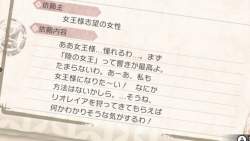 依頼主
女王様志望の女性
依頼内容
ああ女王様…憧れるわ…。まず
「陸の女王」って響きが最高よ。
たまらないわ。あーあ、私も
女王様になりた～い！　なにか
方法はないかしら。…そうね、
リオレイアを狩ってきてもらえば
何かわかりそうな気がするわ！